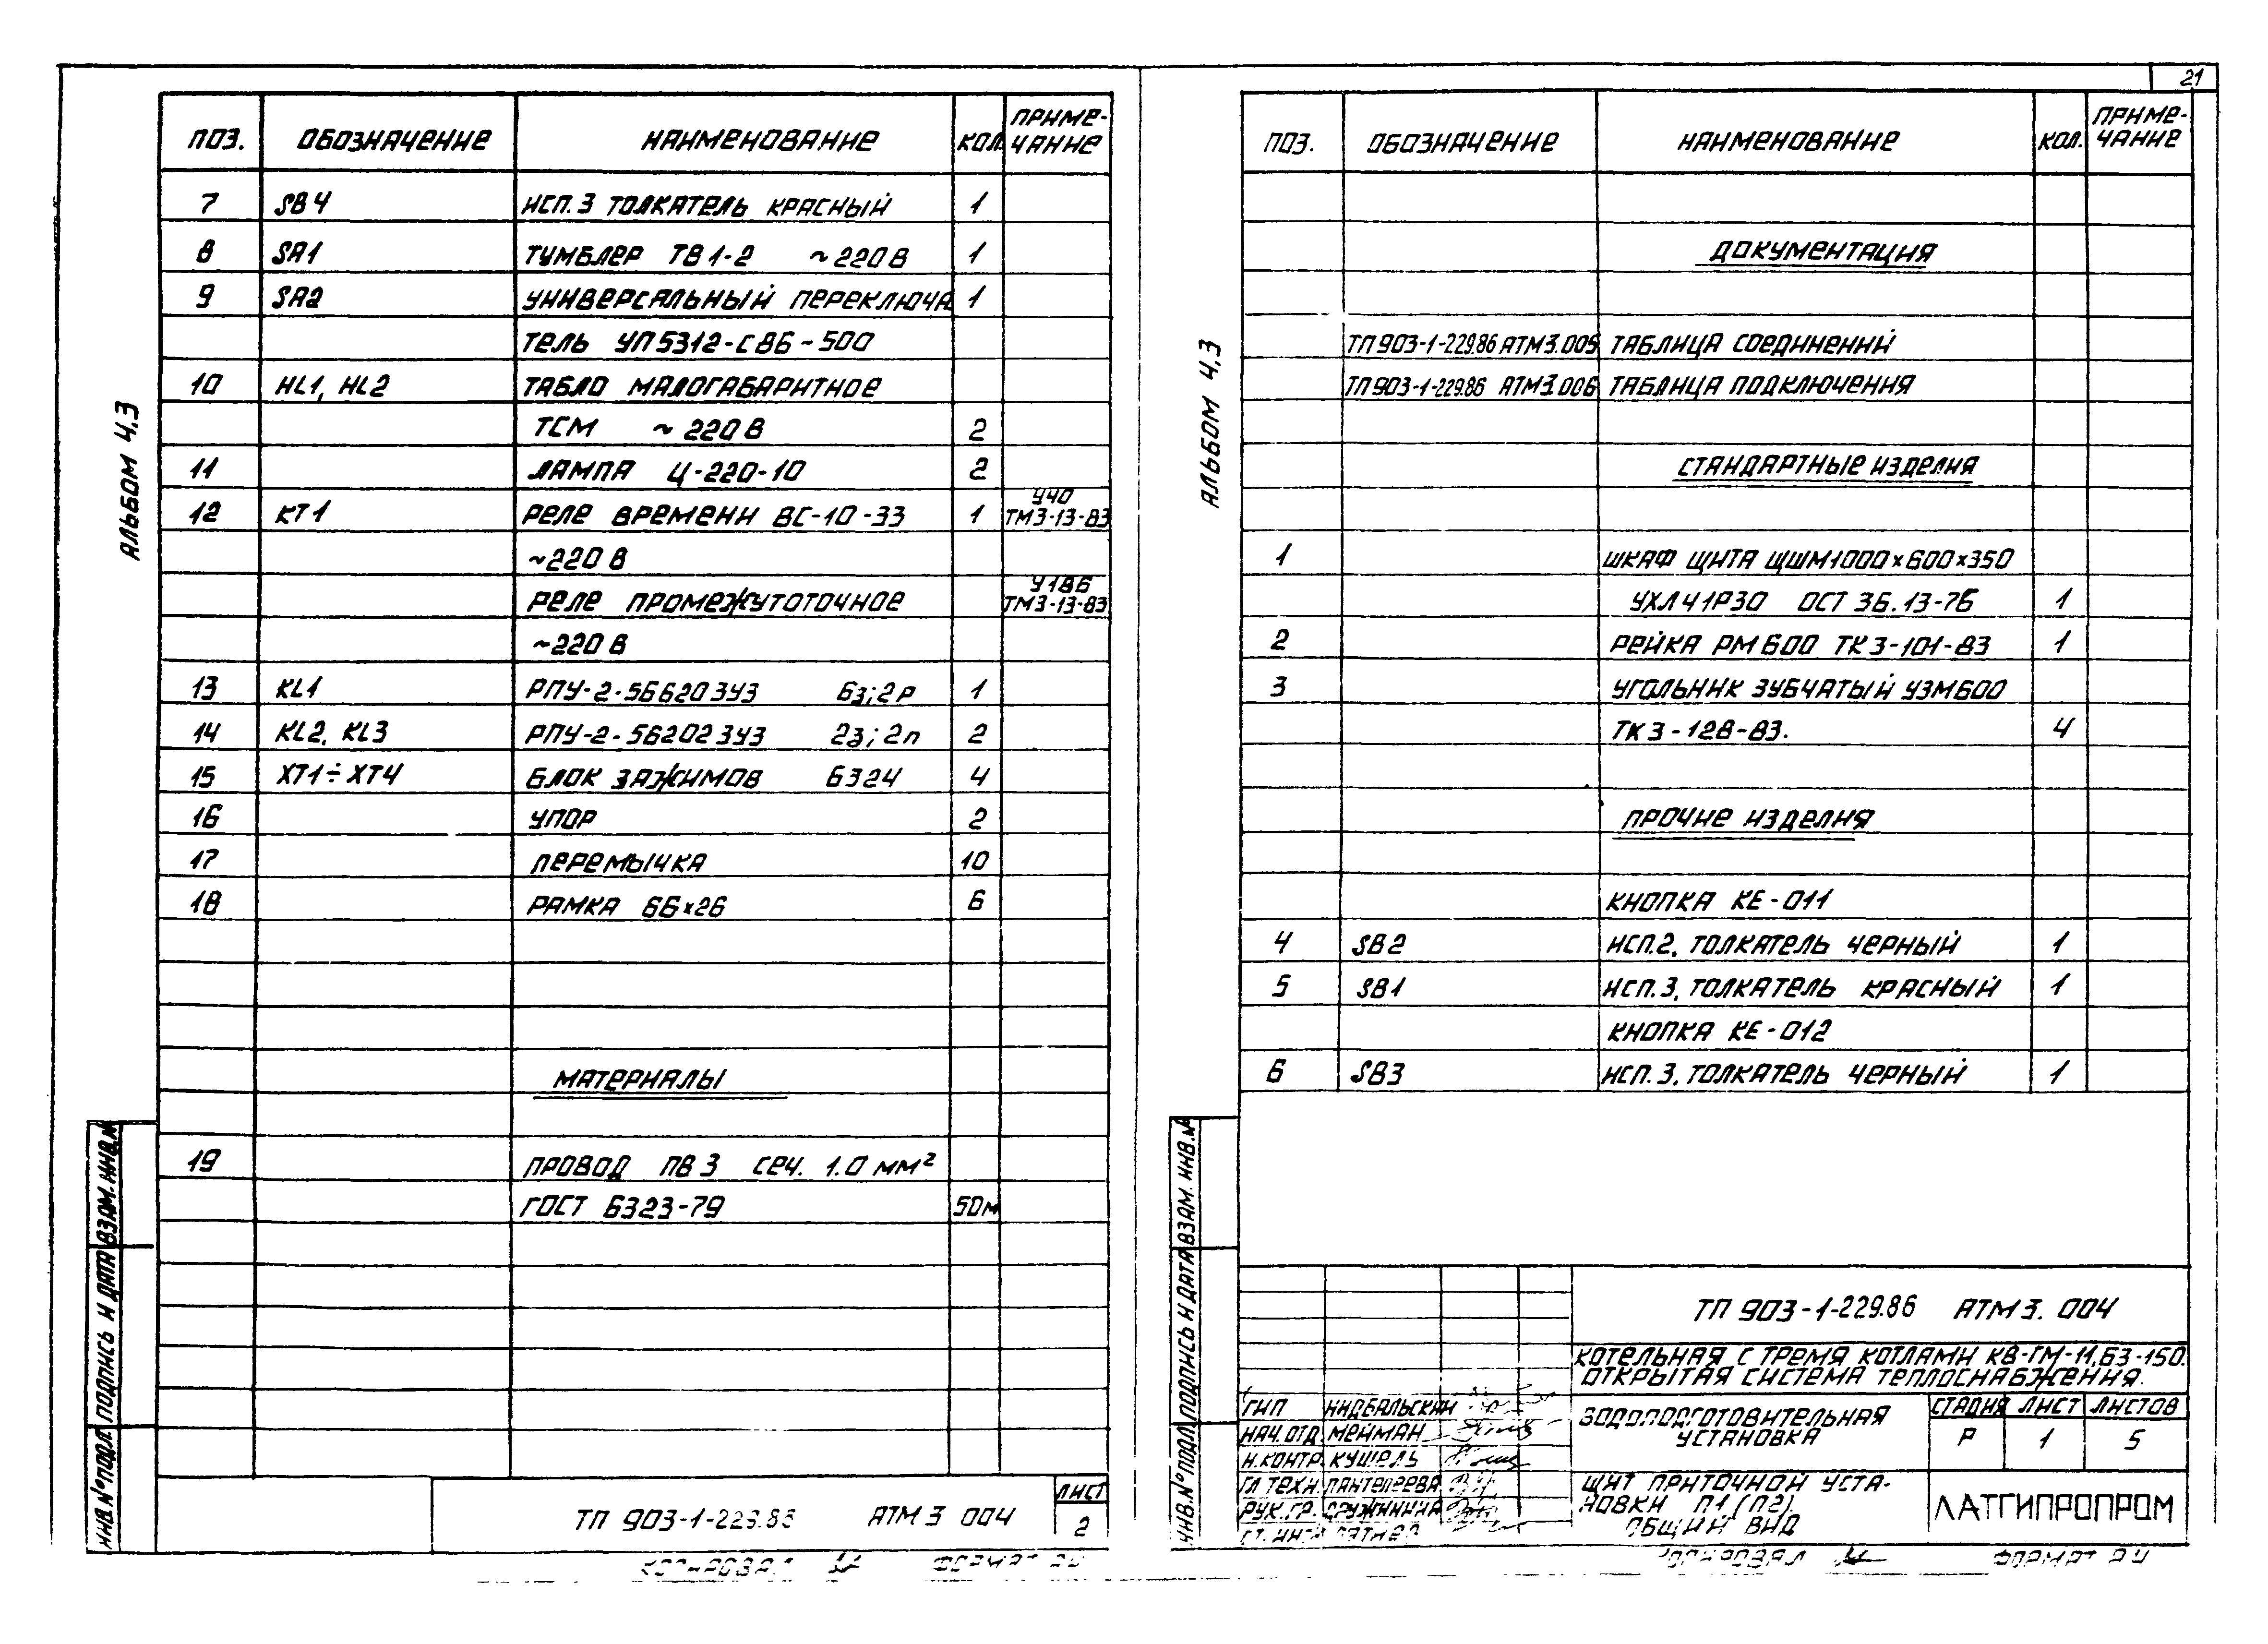 21
АЛЬБОМ 4.3
ПОЗ. ОБОЗНАЧЕНИЕ НАИМЕНОВАНИЕ КОЛ. ПРИМЕ-
ЧАНИЕ
7 SB4 ИСП.3 ТОЛКАТЕЛЬ КРАСНЫЙ 1
8 SA1 ТУМБЛЕР ТВ1-2 ~220В 1
9 SA2 УНИВЕРСАЛЬНЫЙ ПЕРЕКЛЮЧА 1
ТЕЛЬ УП5312-С86~500
10 HL1, HL2 ТАБЛО МАЛОГАБАРИТНОЕ
ТСМ ~220В 2
11 ЛАМПА Ц-220-10 2
12 КТ1 РЕЛЕ ВРЕМЕНИ ВС-10-33 1 У40
ТМ3-13-83
~220В
РЕЛЕ ПРОМЕЖУТОТОЧНОЕ У186
ТМ3-13-83
~220В
13 KL1 РПУ-2-566203У3 6з;2р 1
14 KL2, KL3 РПУ-2-562023У3 2з;2п 2
15 XT1÷XT4 БЛОК ЗАЖИМОВ БЗ24 4
16 УПОР 2
17 ПЕРЕМЫЧКА 10
18 РАМКА 66×26 6
МАТЕРИАЛЫ
19 ПРОВОД ПВ3 СЕЧ. 1.0 ММ²
ГОСТ 6323-79 50м
ИНВ.№ПОДЛ ПОДПИСЬ И ДАТА ВЗАМ.ИНВ.№
ТП 903-1-229.86 АТМ3 004
ЛИСТ
2
КОПИРОВАЛ ФОРМАТ А4
АЛЬБОМ 4.3
ПОЗ. ОБОЗНАЧЕНИЕ НАИМЕНОВАНИЕ КОЛ. ПРИМЕ-
ЧАНИЕ
ДОКУМЕНТАЦИЯ
ТП903-1-229.86 АТМ3.005 ТАБЛИЦА СОЕДИНЕНИЙ
ТП903-1-229.86 АТМ3.006 ТАБЛИЦА ПОДКЛЮЧЕНИЯ
СТАНДАРТНЫЕ ИЗДЕЛИЯ
1 ШКАФ ЩИТА ЩШМ1000×600×350
УХЛ41Р30 ОСТ 36.13-76 1
2 РЕЙКА РМ600 ТК3-101-83 1
3 УГОЛЬНИК ЗУБЧАТЫЙ УЗМ600
ТК3-128-83. 4
ПРОЧИЕ ИЗДЕЛИЯ
КНОПКА КЕ-011
4 SB2 ИСП.2, ТОЛКАТЕЛЬ ЧЕРНЫЙ 1
5 SB1 ИСП.3, ТОЛКАТЕЛЬ КРАСНЫЙ 1
КНОПКА КЕ-012
6 SB3 ИСП.3, ТОЛКАТЕЛЬ ЧЕРНЫЙ 1
ИНВ.№ПОДЛ ПОДПИСЬ И ДАТА ВЗАМ.ИНВ.№
ТП 903-1-229.86 АТМ3. 004
КОТЕЛЬНАЯ С ТРЕМЯ КОТЛАМИ КВ-ГМ-11,63-150.
ОТКРЫТАЯ СИСТЕМА ТЕПЛОСНАБЖЕНИЯ.
ГИП НИДБАЛЬСКАЯ
НАЧ.ОТД. МЕЙМАН
Н.КОНТР. КУШЕЛЬ
ГЛ ТЕХН. ПАНТЕЛЕЕВА
РУК.ГР. ДРУЖИНИНА
СТ. ИНЖ
ВОДОПОДГОТОВИТЕЛЬНАЯ
УСТАНОВКА
СТАДИЯ ЛИСТ ЛИСТОВ
Р 1 5
ЩИТ ПРИТОЧНОЙ УСТА-
НОВКИ П1(П2).
ОБЩИЙ ВИД
ЛАТГИПРОПРОМ
КОПИРОВАЛ ФОРМАТ А4